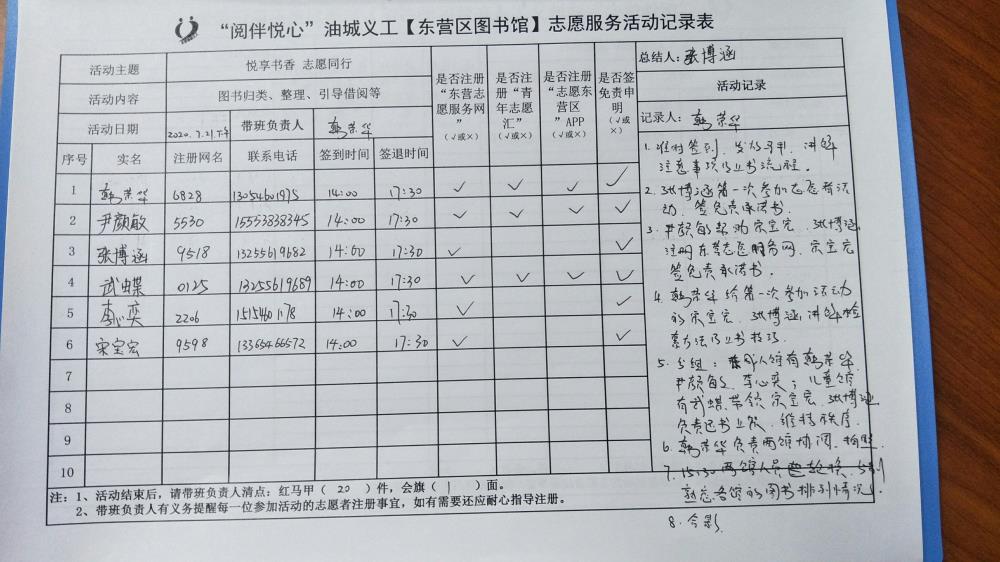 “阅伴悦心”油城义工【东营区图书馆】志愿服务活动记录表
活动主题 悦享书香 志愿同行
活动内容 图书归类、整理、引导借阅等
活动日期 2020.7.21.下午 带班负责人 韩荣华
是否注册“东营志愿服务网”（√或×）
是否注册“青年志愿汇”（√或×）
是否注册“志愿东营区”APP（√或×）
是否签免责申明（√或×）
总结人：张博涵
活动记录
记录人：韩荣华
序号 实名 注册网名 联系电话 签到时间 签退时间
1 韩荣华 6828 13054601975 14:00 17:30 √ √ √ √
2 尹颜敏 5530 15553838345 14:00 17:30 √ √ √ √
3 张博涵 9518 13255619682 14:00 17:30 √ √
4 武蝶 0125 13255619689 14:00 17:30 √ √ √ √
5 李心奕 2206 15154601178 14:00 17:30 √ √
6 宋宝宏 9598 13365466572 14:00 17:30 √ √
7
8
9
10
1. 准时签到、发放马甲、讲解
注意事项及上书流程.
2. 张博涵第一次参加志愿者活
动、签免责承诺书.
3. 尹颜敏帮助宋宝宏、张博涵
注册东营志愿服务网、宋宝宏
签免责承诺书.
4. 韩荣华给第一次参加活动
的宋宝宏、张博涵讲解检
索方法及上书技巧.
5. 分组：成人馆有韩荣华、
尹颜敏、李心奕；儿童馆
有武蝶带领宋宝宏、张博涵
负责图书上架、维持秩序.
6. 韩荣华负责两馆协调、拍照
7. 15:30两馆人员轮换、分别
熟悉各馆的图书排列情况.
8. 合影
注：1、活动结束后，请带班负责人清点：红马甲（ 20 ）件，会旗（ 1 ）面。
2、带班负责人有义务提醒每一位参加活动的志愿者注册事宜，如有需要还应耐心指导注册。